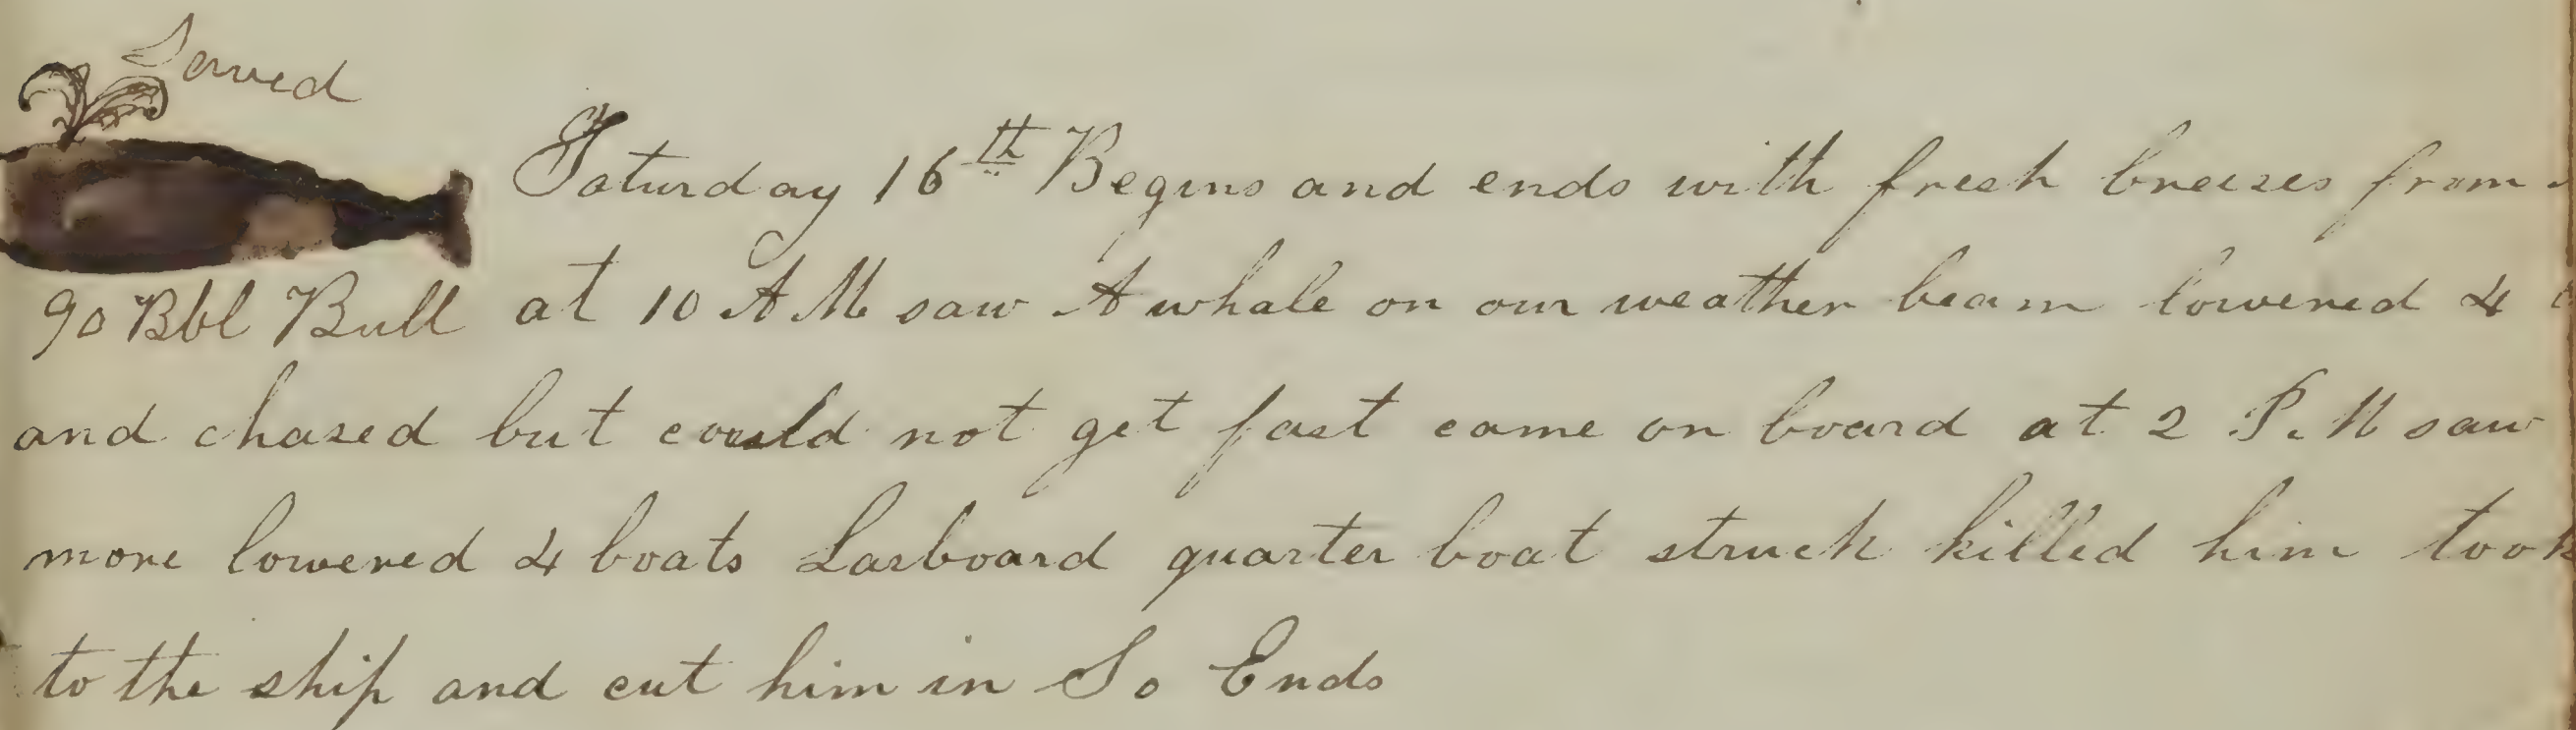 Saved
Saturday 16th Begins and ends with fresh breezes from
90 Bbl Bull at 10 A M saw A whale on our weather beam lowered 4
and chased but could not get fast came on board at 2 P. M saw
more lowered 4 boats Larboard quarter boat struck killed him took
to the ship and cut him in So Ends